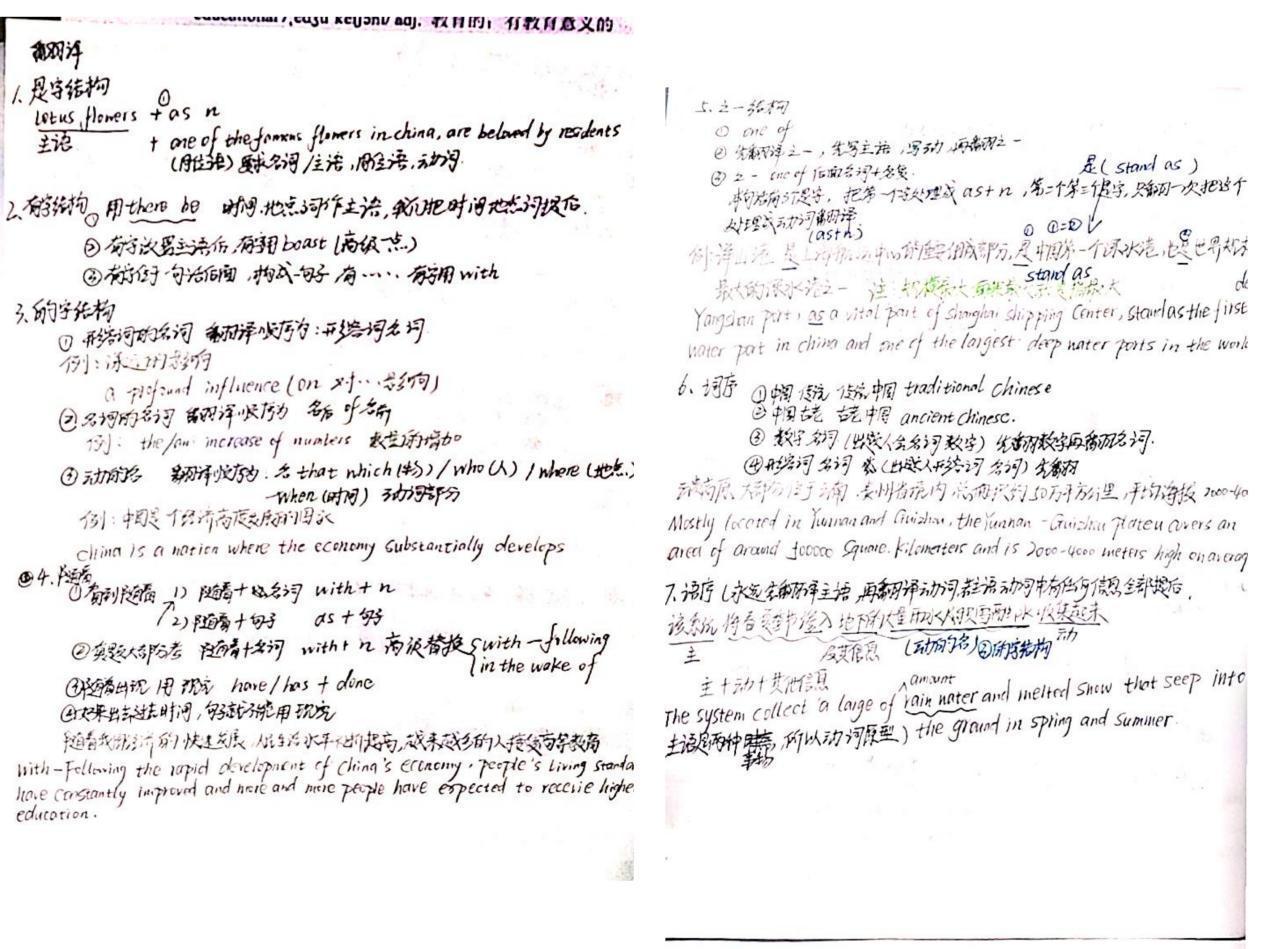 adj. 教育的；有教育意义的
翻译
1. 是字结构
①
lotus flowers + as n
主语 + one of the famous flowers in china, are beloved by residents
(同位语) 要求名词/主语,同位语,动词.
2.有字结构 ① 用there be 时间.地点词作主语,我们把时间地点词提后.
② 有字放男主语后,有翻 boast (高级一点)
③ 有字位于一句话后面,构成一句子 有…… 有字用 with
3.的字结构
① 形容词的名词 翻译顺序为:形容词名词
例:深远的影响
a profound influence (on 对…影响)
② 名词的名词 翻译顺序为 名后 of 名前
例: the/an increase of numbers 数量的增加
③ 动的名 翻译顺序为.名 that which (物) / who (人) / where (地点)
when (时间) 动词部分
例:中国是一个经济高度发展的国家
China is a nation where the economy substantially develops
4.随着
① 看到随着 1) 随着+名词 with + n
2) 随着+句子 as + 句子
② 真题大部分考 随着+名词 with + n 高级替换 with-following
in the wake of
③随着出现 用 现完 have/has + done
④文章出去过去时间,句子就不能用现完
随着我国经济的快速发展,人民生活水平不断提高,越来越多的人接受高等教育
With-Following the rapid development of China's economy, people's living standa
have constantly improved and more and more people have expected to recevie highe
education.
5.之一结构
① one of
② 先翻译之一,先写主语,写动,再翻之一
③ 之一 one of 后面名词+名复. 是( stand as )
一句话有3个是字, 把第一个字处理成 as + n ,第二个第三个是字,只翻一次把这个
处理成动词翻译
(as+n) ① ①=② ②
例:洋山港 是上海航运中心的重要组成部分,是中国第一个深水港,也是世界
stand as
最大的深水港之一 注:
Yangshan port, as a vital part of shanghai shipping Center, stand as the first
de
water port in china and one of the largest deep water ports in the work
6.词序 ①中国 传统 传统中国 traditional Chinese
② 中国古老 古老中国 ancient chinese.
③ 数字 名词 (出题人会名词 数字) 先翻数字再翻名词.
④形容词 名词 (出题人形容词 名词) 先翻
云贵高原大部分位于云南 贵州省境内 总面积约50万平方公里,平均海拔 2000-40
Mostly located in Yunnan and Guizhou, the Yunnan-Guizhou plateu covers an
area of around 500000 Square. kilometers and is 2000-4000 meters high on averag
7.语序 (永远先翻译主语,再翻译动词,若主语动词中有任何信息全部提后.
该系统 将春夏季节渗入地下的大量雨水及积雪融水 收集起来
主 及其信息 (动的名) ②的字结构 动
主+动+其他信息 amount
The system collect a large of rain water and melted snow that seep into
主语是两种事物,所以动词原型) the ground in spring and summer.